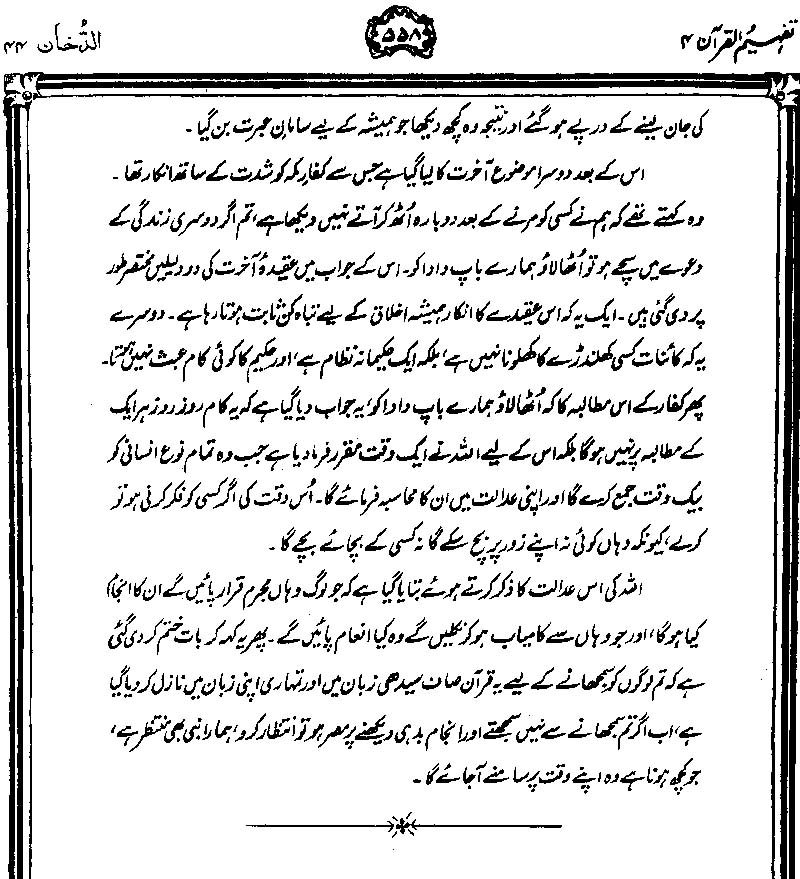 تفہیم القرآن ۴
۵۵۸
الدُّخان ۴۴
کی جان لینے کے درپے ہو گئے اور نتیجہ وہ کچھ دیکھا جو ہمیشہ کے لیے سامانِ عبرت بن گیا۔
اس کے بعد دوسرا موضوع آخرت کا لیا گیا ہے جس سے کفارِ مکہ کو شدت کے ساتھ انکار تھا۔
وہ کہتے تھے کہ ہم نے کسی کو مرنے کے بعد دوبارہ اُٹھ کر آتے نہیں دیکھا ہے، تم اگر دوسری زندگی کے
دعوے میں سچے ہو تو اُٹھا لاؤ ہمارے باپ دادا کو۔ اس کے جواب میں عقیدۂ آخرت کی دو دلیلیں مختصر طور
پر دی گئی ہیں۔ ایک یہ کہ اس عقیدے کا انکار ہمیشہ اخلاق کے لیے تباہ کن ثابت ہوتا رہا ہے۔ دوسرے
یہ کہ کائنات کسی کھلنڈرے کا کھلونا نہیں ہے، بلکہ ایک حکیمانہ نظام ہے، اور حکیم کا کوئی کام عبث نہیں ہوتا۔
پھر کفار کے اس مطالبہ کا کہ اُٹھا لاؤ ہمارے باپ دادا کو، یہ جواب دیا گیا ہے کہ یہ کام روز روز ہر ایک
کے مطالبہ پر نہیں ہوگا بلکہ اس کے لیے اللہ نے ایک وقت مقرر فرما دیا ہے جب وہ تمام نوعِ انسانی کو
بیک وقت جمع کرے گا اور اپنی عدالت میں ان کا محاسبہ فرمائے گا۔ اُس وقت کی اگر کسی کو فکر کرنی ہو تو
کرلے، کیونکہ وہاں کوئی نہ اپنے زور پر بچ سکے گا نہ کسی کے بچائے بچے گا۔
اللہ کی اس عدالت کا ذکر کرتے ہوئے بتایا گیا ہے کہ جو لوگ وہاں مجرم قرار پائیں گے ان کا انجام
کیا ہوگا، اور جو وہاں سے کامیاب ہو کر نکلیں گے وہ کیا انعام پائیں گے۔ پھر یہ کہہ کر بات ختم کر دی گئی
ہے کہ تم لوگوں کو سمجھانے کے لیے یہ قرآن صاف سیدھی زبان میں اور تمہاری اپنی زبان میں نازل کر دیا گیا
ہے، اب اگر تم سمجھانے سے نہیں سمجھتے اور انجامِ بد ہی دیکھنے پر مصر ہو تو انتظار کرو، ہمارا نبی بھی منتظر ہے،
جو کچھ ہونا ہے وہ اپنے وقت پر سامنے آجائے گا۔